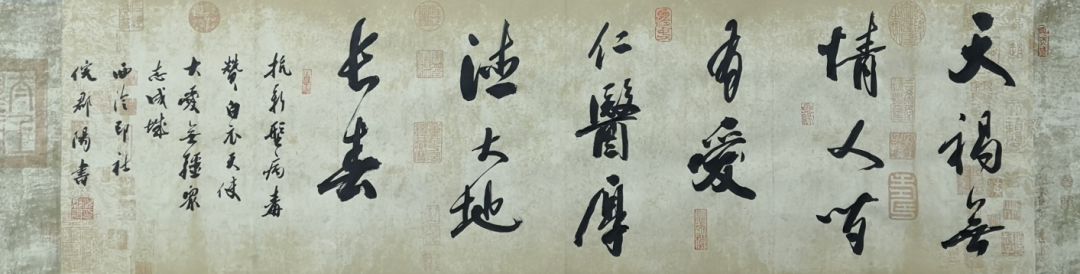 天禍無
情人間
有愛
仁醫厚
德大地
長春
抗新型病毒
贊白衣天使
大愛無疆眾
志成城
西泠印社
倪郡陽書